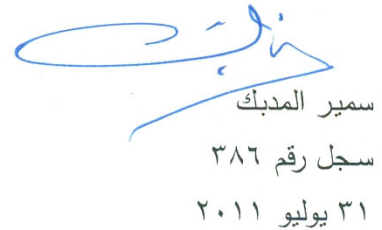 سمير المدبك
سجل رقم ٣٨٦
٣١ يوليو ٢٠١١